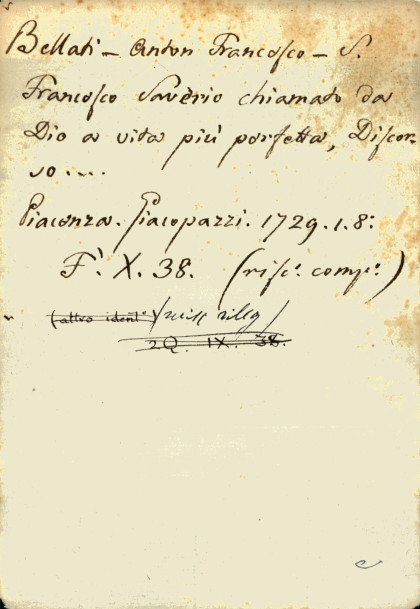 Bellati - Anton Francesco - S.
Francesco Saverio chiamato da
Dio a vita più perfetta, Discor
so....
Piacenza. Giacopazzi. 1729. 1. 8:
F. X. 38. (risc. comp.)
(altro ident.)
2Q. IX. 38.